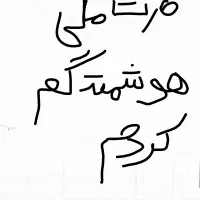 ملی
هوشمند گم
کردم